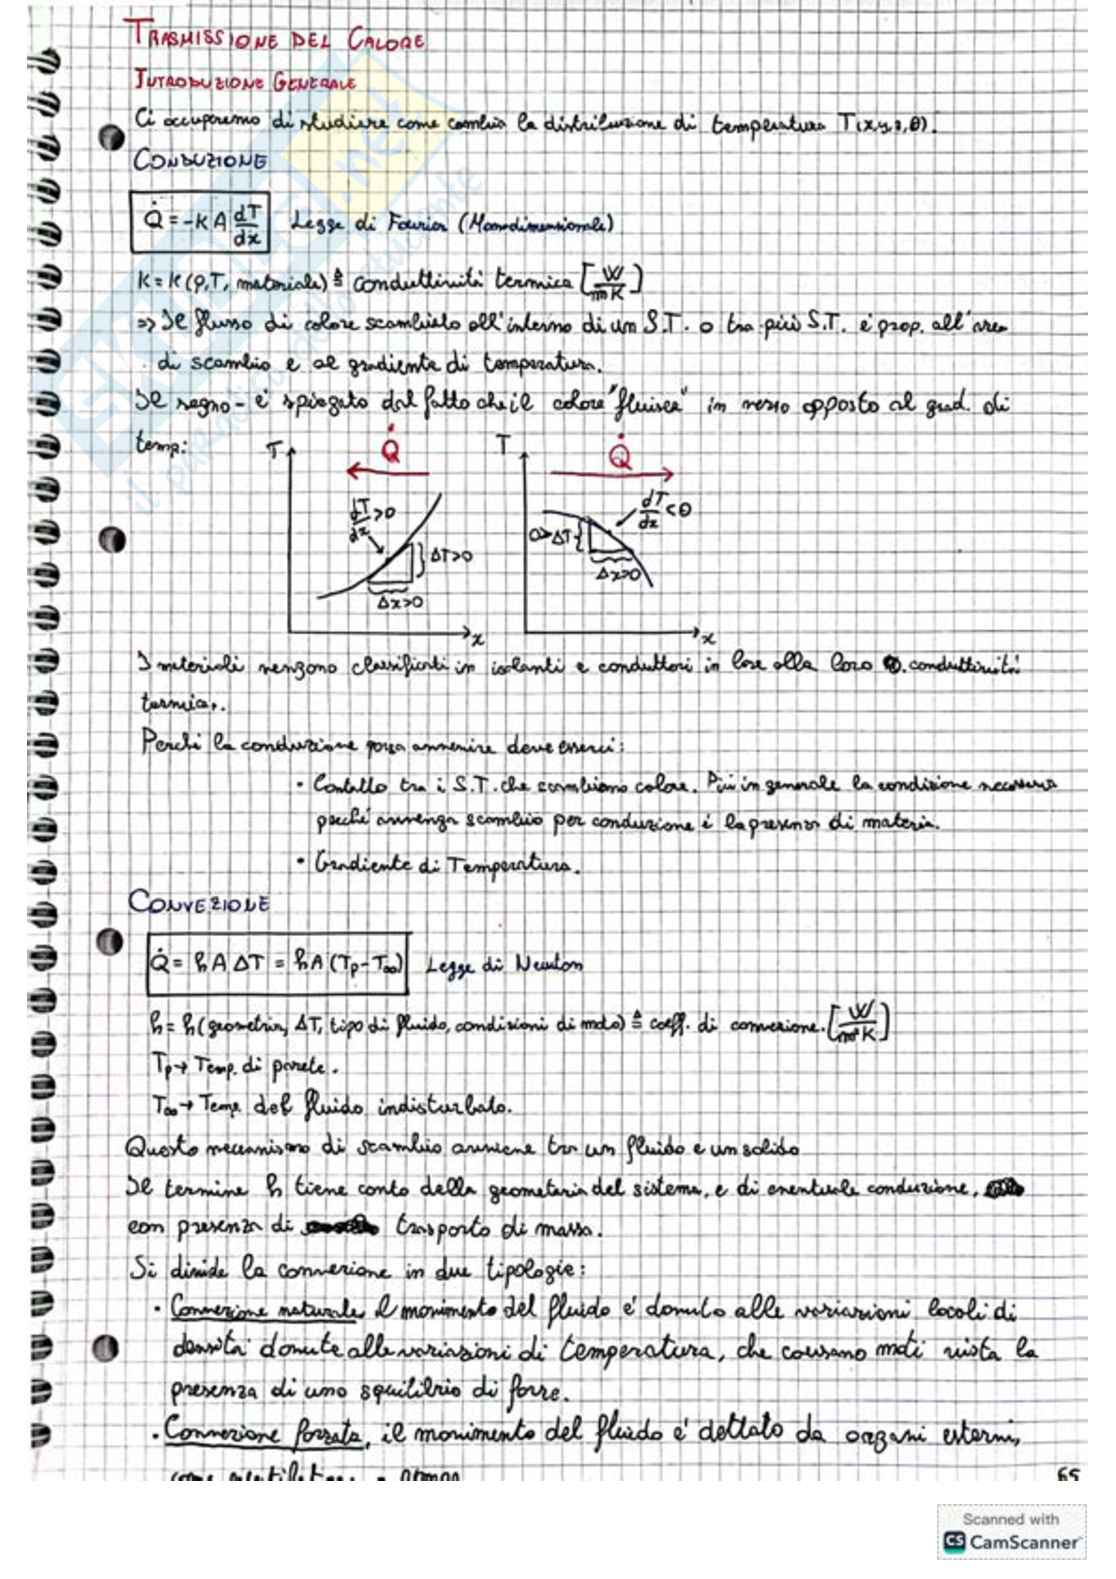 TRASMISSIONE DEL CALORE
INTRODUZIONE GENERALE
Ci occuperemo di studiare come cambia la distribuzione di temperatura T(x,y,z,θ).
CONDUZIONE
Q̇ = -K A dT/dx Legge di Fourier (Monodimensionale)
K = K (P,T, materiale) ≜ conduttività termica [W/mK]
=> Il flusso di calore scambiato all'interno di un S.T. o tra più S.T. è prop. all'area
di scambio e al gradiente di temperatura.
Il segno - è spiegato dal fatto che il calore "fluisca" in verso opposto al grad. di
temp:
T Q̇ T Q̇
dT/dx >0 dT/dx <0
ΔT>0 0>ΔT
Δx>0 Δx>0
x x
I materiali vengono classificati in isolanti e conduttori in base alla loro conduttività
termica.
Perché la conduzione possa avvenire deve esserci:
• Contatto tra i S.T. che scambiano calore. Più in generale la condizione necessaria
perché avvenga scambio per conduzione è la presenza di materia.
• Gradiente di Temperatura.
CONVEZIONE
Q̇ = h A ΔT = h A (Tp - T∞) Legge di Newton
h = h (geometria, ΔT, tipo di fluido, condizioni di moto) ≜ coeff. di convezione. [W/m²K]
Tp → Temp. di parete.
T∞ → Temp. del fluido indisturbato.
Questo meccanismo di scambio avviene tra un fluido e un solido
Il termine h tiene conto della geometria del sistema, e di eventuale conduzione,
con presenza di trasporto di massa.
Si divide la convezione in due tipologie:
• Convezione naturale il movimento del fluido è dovuto alle variazioni locali di
densità dovute alle variazioni di temperatura, che causano moti vista la
presenza di uno squilibrio di forze.
• Convezione forzata, il movimento del fluido è dettato da organi esterni,
come
65
Scanned with
CS CamScanner
SKUOLA.net